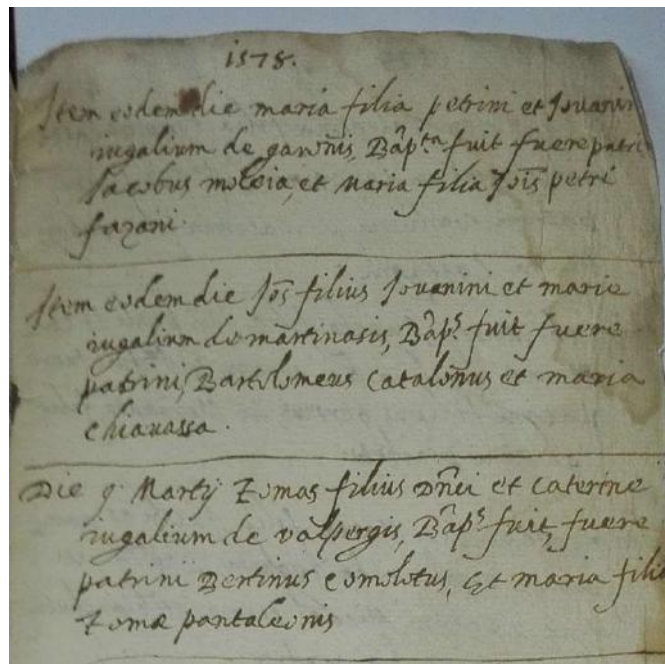 1578.
Item eodem die maria filia petrini et Jovanin
iugalium de garoñis, Bâpta fuit fuere patri
Jacobus moleia, et maria filia Joīs petri
fazani
Item eodem die Joēs filius Jovanini et marie
iugalium de martinasis, Bâps fuit fuere
patrini, Bartolomeus Cataloñus et maria
chiavassa.
Die 9 Martij Tomas filius Dñici et Caterine
iugalium de valpergis, Bâps fuit, fuere
patrini Bertinus comolotus, Et maria filia
Tomæ pantaleonis